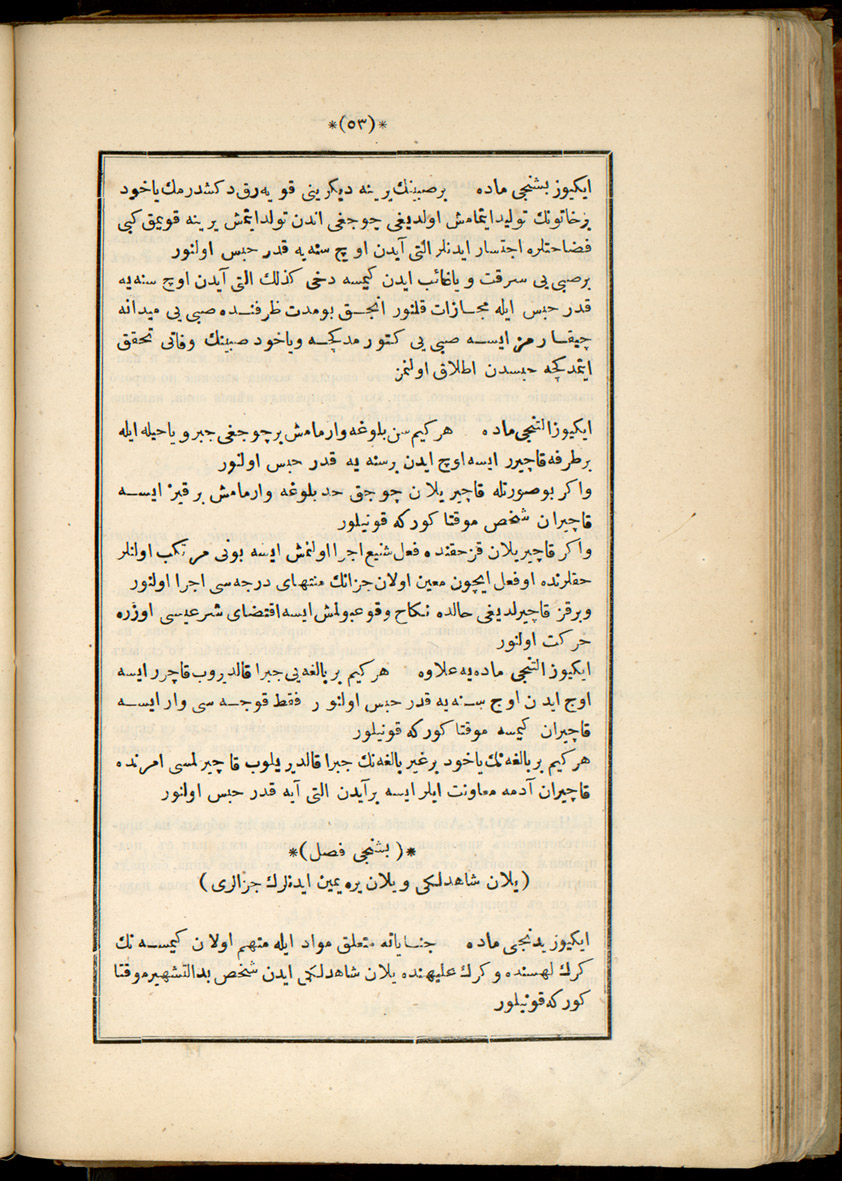 *(٥٣)*
ایکیوز بشنجی ماده برصبینك یرینه دیکرینی قویه‌رق دکشدرمك یاخود
برخاتونك تولید ایتمامش اولدیغی چوجغی اندن تولد ایتمش یرینه قویمق کبی
فضاحتلره اجتسار ایدنلر التی آیدن اوچ سنه‌یه قدر حبس اولنور
برصبی یی سرقت ویا غائب ایدن کیمسه دخی کذلك التی آیدن اوچ سنه‌یه
قدر حبس ایله مجازات قلنور انجق بومدت ظرفنده صبی یی میدانه
چیقارمز ایسه صبی یی کتورمدکجه ویاخود صبینك وفاتی تحقق
ایتمدکچه حبسدن اطلاق اولنمز
ایکیوز التنجی ماده هرکیم سن بلوغه وارمامش برچوجغی جبر ویا حیله ایله
برطرفه قاچیرر ایسه اوچ ایدن برسنه یه قدر حبس اولنور
واکر بوصورتله قاچیریلان چوجق حد بلوغه وارمامش برقیز ایسه
قاچیران شخص موقتا کورکه قونیلور
واکر قاچیریلان قزحقنده فعل شنیع اجرا اولنمش ایسه بونی مرتکب اولانلر
حقلرنده اوفعل ایچون معین اولان جزانك منتهای درجه‌سی اجرا اولنور
وبرقز قاچیرلدیغی حالده نکاح وقوعبولمش ایسه اقتضای شرعیسی اوزره
حرکت اولنور
ایکیوز التنجی ماده‌یه علاوه هرکیم بر بالغه‌یی جبرا قالدیروب قاچرر ایسه
اوج ایدن اوچ سنه‌یه قدر حبس اولنور فقط قوجه سی وار ایسه
قاچیران کیمسه موقتا کورکه قونیلور
هرکیم بر بالغه‌نك یاخود برغیر بالغه‌نك جبرا قالدیریلوب قاچیرلمسی امرنده
قاچیران آدمه معاونت ایلر ایسه برآیدن التی آیه قدر حبس اولنور
*(بشنجی فصل)*
(یلان شاهدلکی ویلان یره یمین ایدنلرك جزالری)
ایکیوز یدنجی ماده جنایاته متعلق مواد ایله متهم اولان کیمسه نك
کرك لهنده وکرك علیهنده یلان شاهدلکی ایدن شخص بدالتشهیر موقتا
کورکه قونیلور